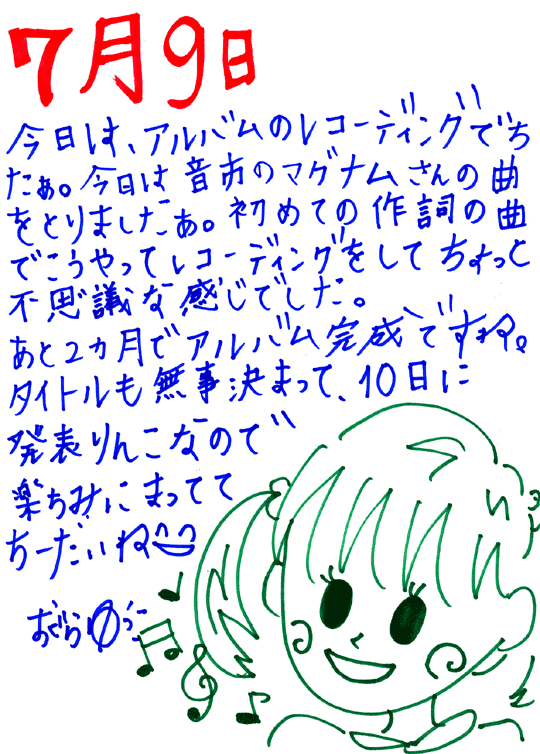 7月9日
今日は、アルバムのレコーディングでち
たぁ。今日は音市のマグナムさんの曲
をとりましたぁ。初めての作詞の曲
でこうやってレコーディングをしてちょっと
不思議な感じでした。
あと2ヵ月でアルバム完成ですね。
タイトルも無事決まって、10日に
発表りんこなので
楽ちみにまってて
ちーだいね
おぐらゆうこ